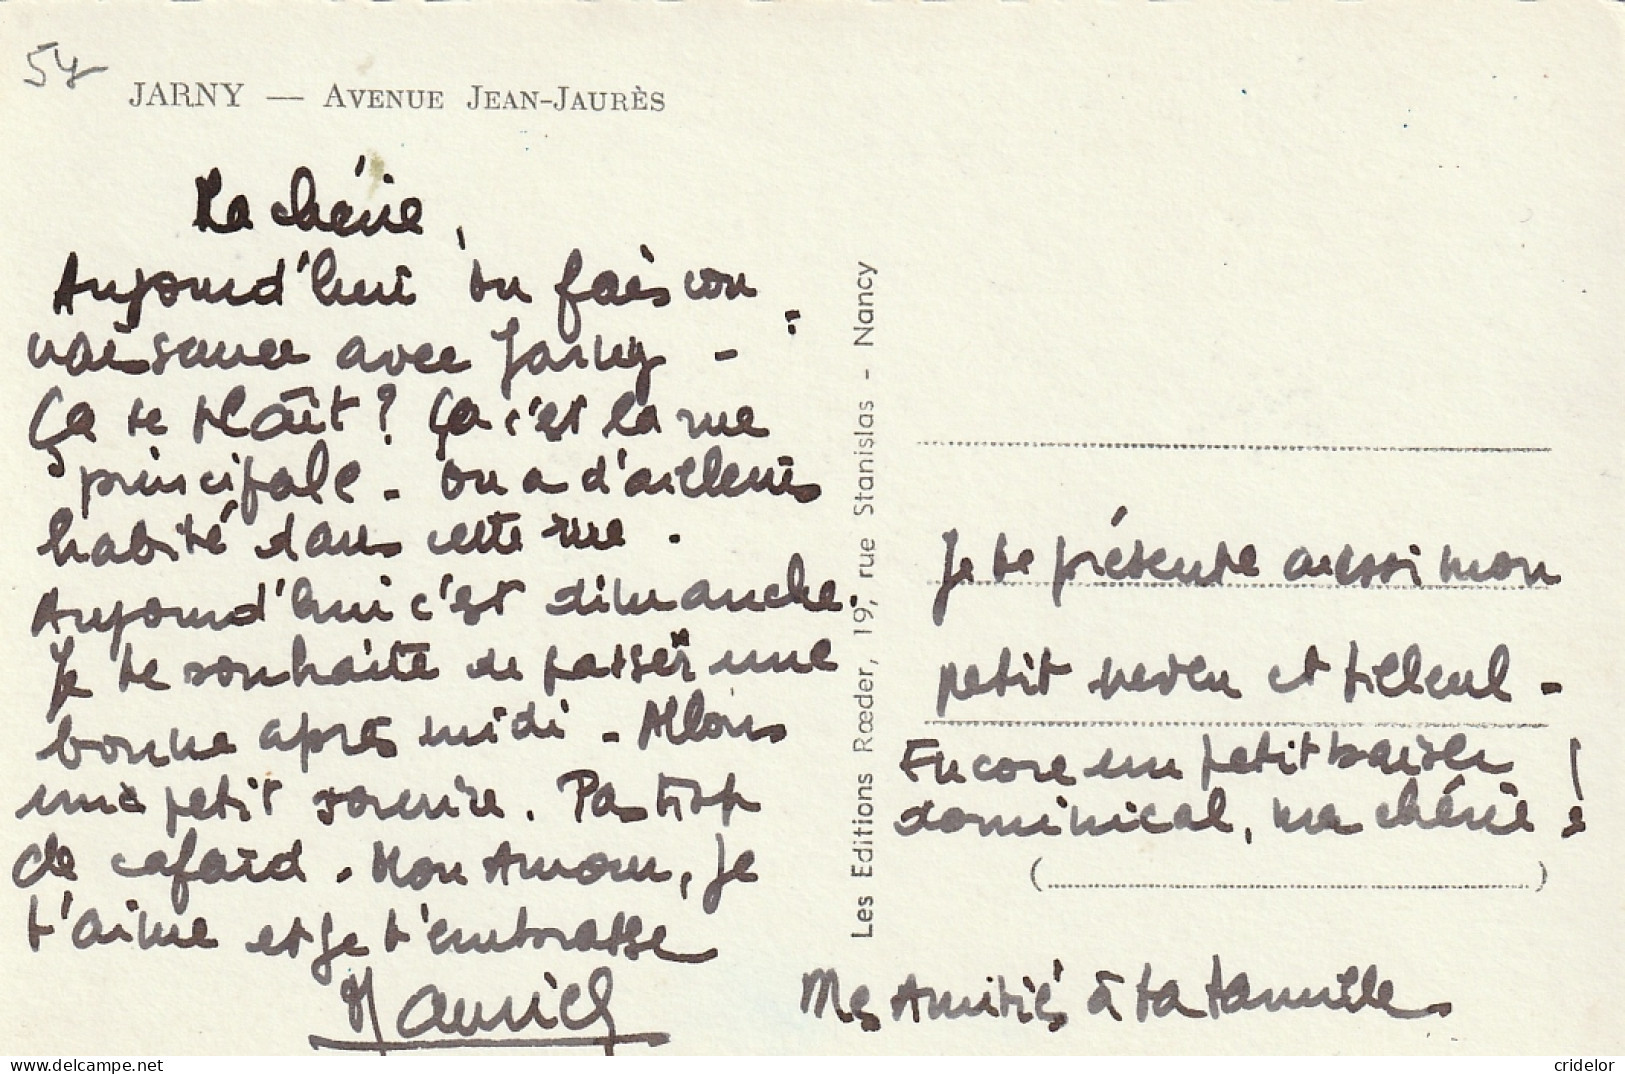 54
JARNY — AVENUE JEAN-JAURÈS
Ma chérie,
Aujourd'hui tu fais con
naissance avec Jarny -
Ça te plaît ? Ça c'est la rue
principale - on a d'ailleurs
habité dans cette rue.
Aujourd'hui c'est dimanche.
Je te souhaite de passer une
bonne après midi - Allons
un petit sourire. Pas trop
de cafard. Mon Amour, je
t'aime et je t'embrasse
Les Editions Rœder, 19, rue Stanislas - Nancy
Je te présente aussi mon
petit neveu et filleul -
Encore un petit baiser
dominical, ma chérie !
Mes Amitiés à ta famille
delcampe.net
cridelor